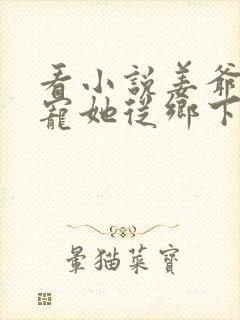 看小說姜爺
寵她從鄉下
暈猫菜寶